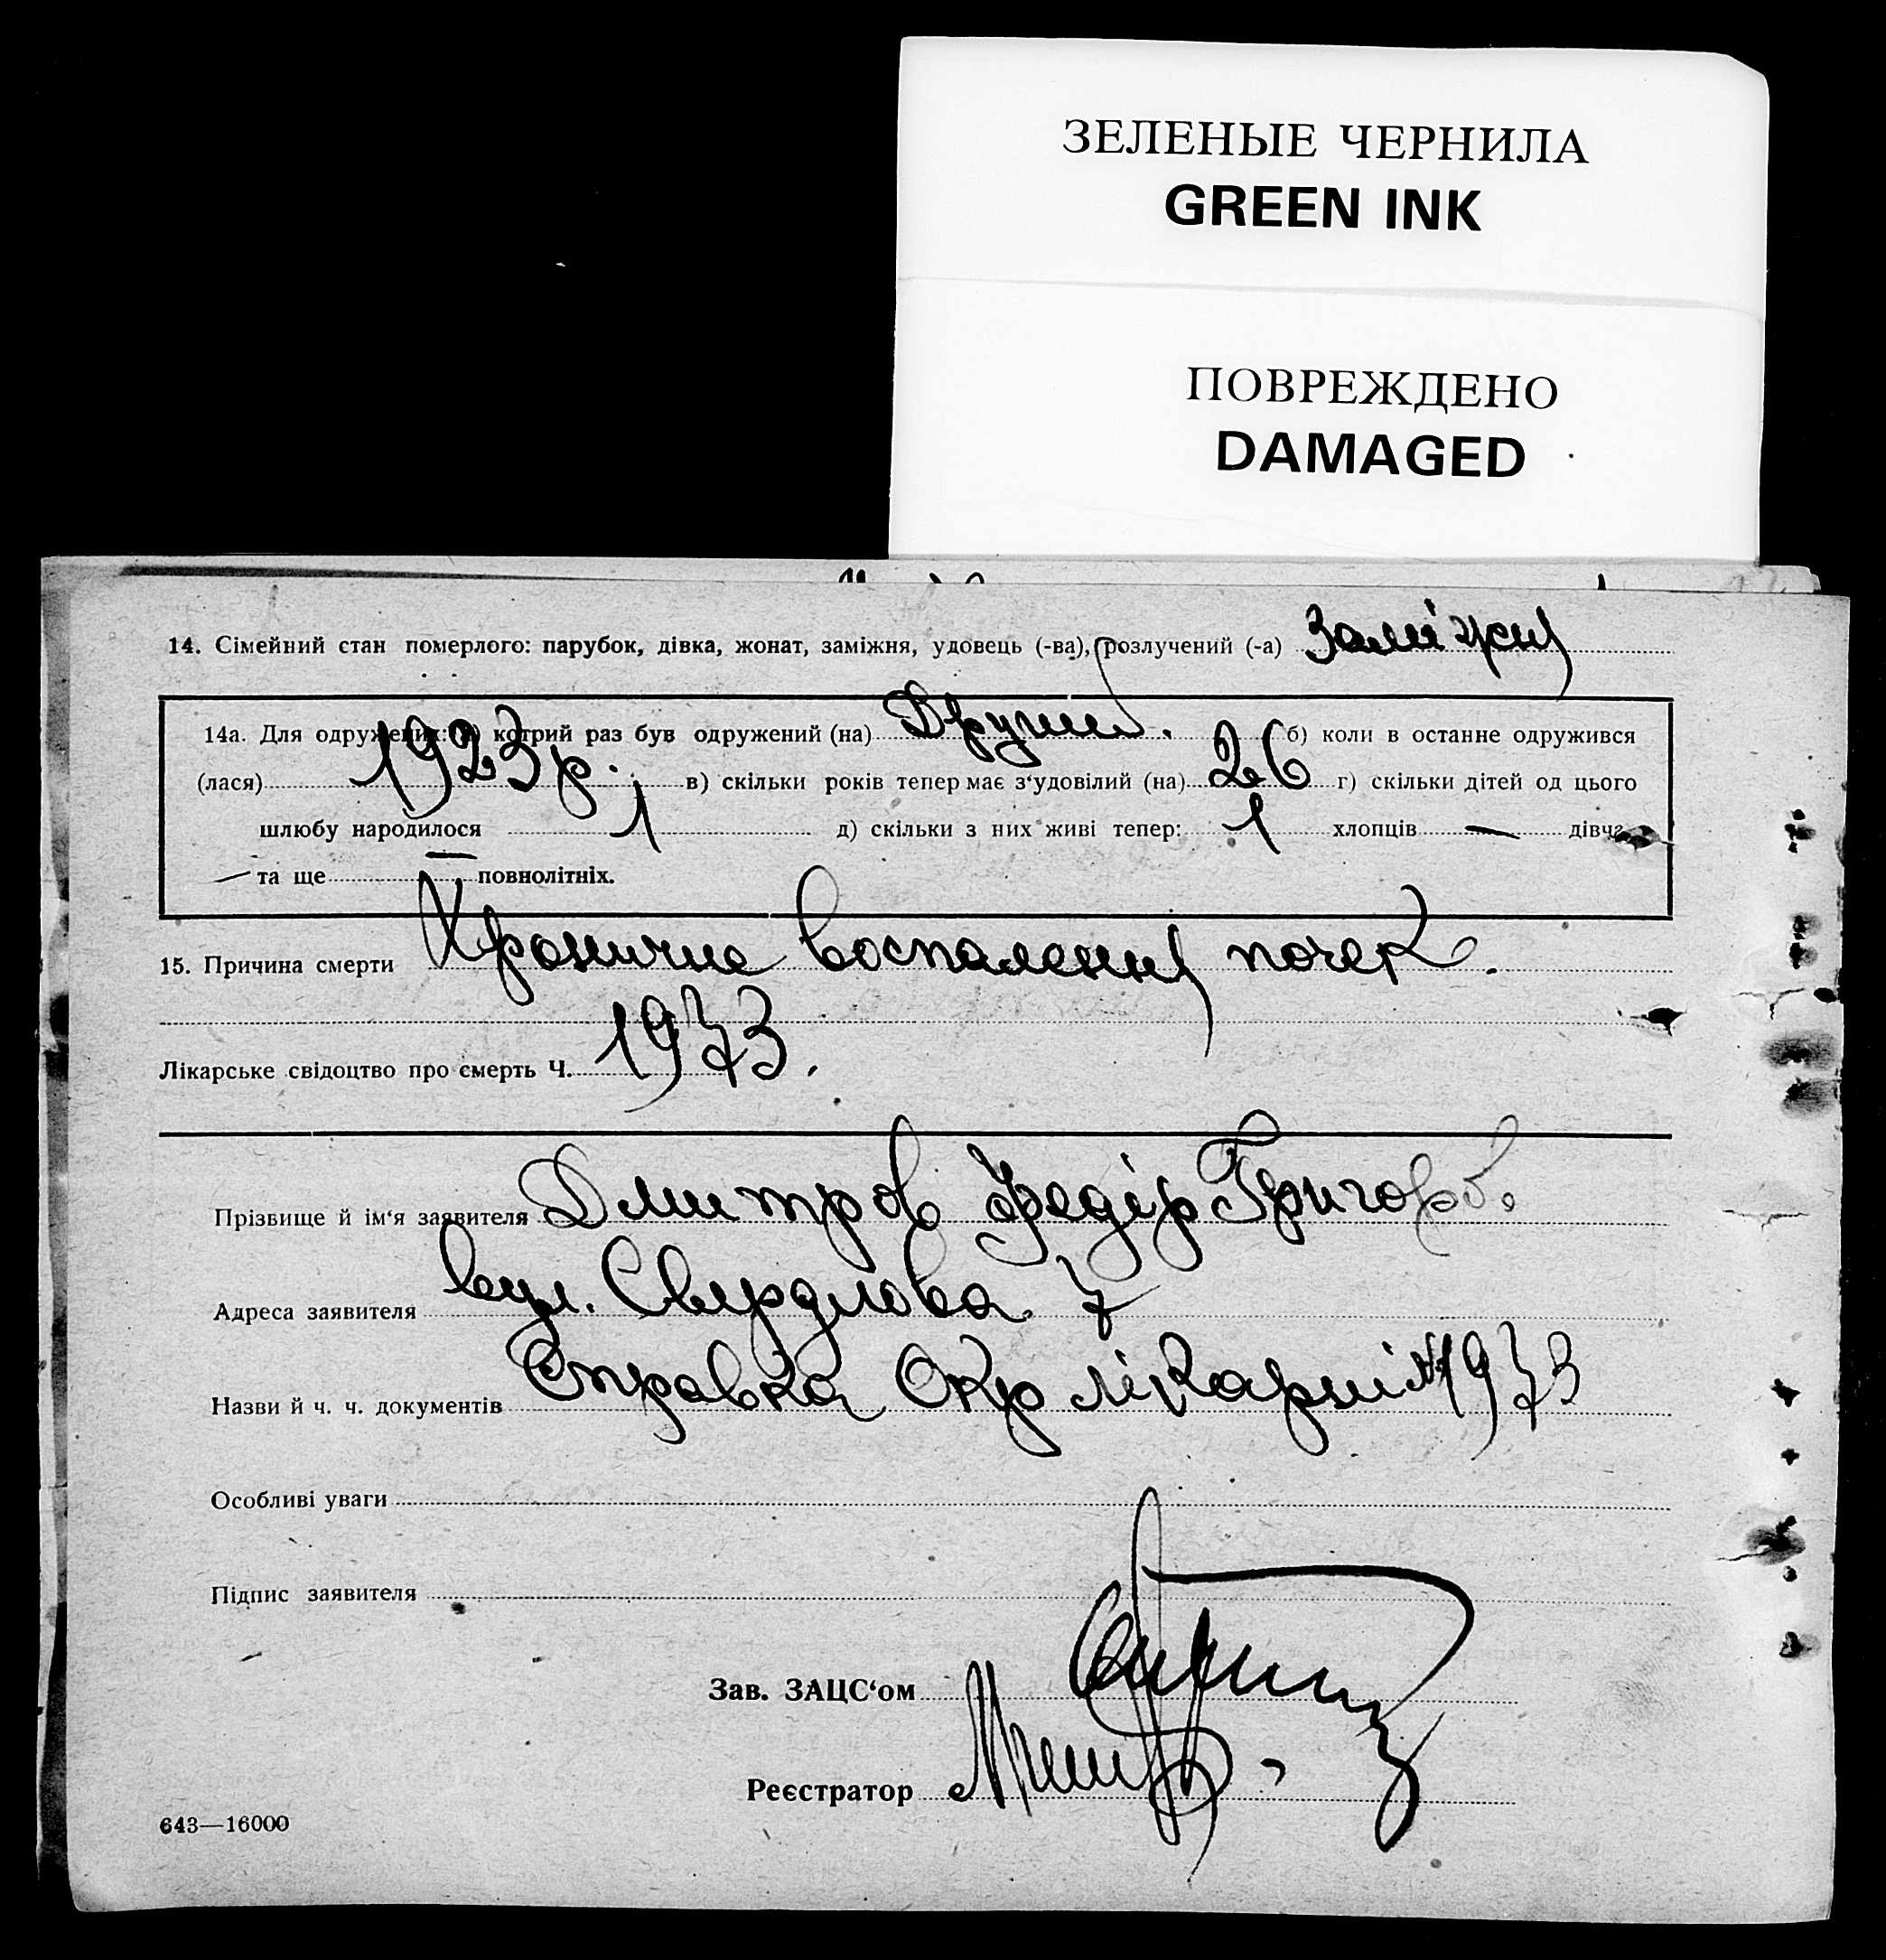 ЗЕЛЕНЫЕ ЧЕРНИЛА
GREEN INK
ПОВРЕЖДЕНО
DAMAGED
14. Сімейний стан померлого: парубок, дівка, жонат, заміжня, удовець (-ва), розлучений (-а) Заміжня
14а. Для одружених: а) котрий раз був одружений (на) Другий. б) коли в останне одружився
(лася) 1923 р. в) скільки років тепер має з‘удовілий (на) 26 г) скільки дітей од цього
шлюбу народилося 1 д) скільки з них живі тепер: 1 хлопців — дівча
— та ще — повнолітніх.
15. Причина смерти Хроничне воспаления почек.
Лікарське свідоцтво про смерть Ч. 1973.
Прізвище й ім‘я заявителя Дмитров Федір Григоров.
Адреса заявителя вул. Свердлова 7
Назви й ч. ч. документів Справка Окр лікарні № 1973
Особливі уваги
Підпис заявителя
Зав. ЗАЦС‘ом
Реєстратор
643—16000